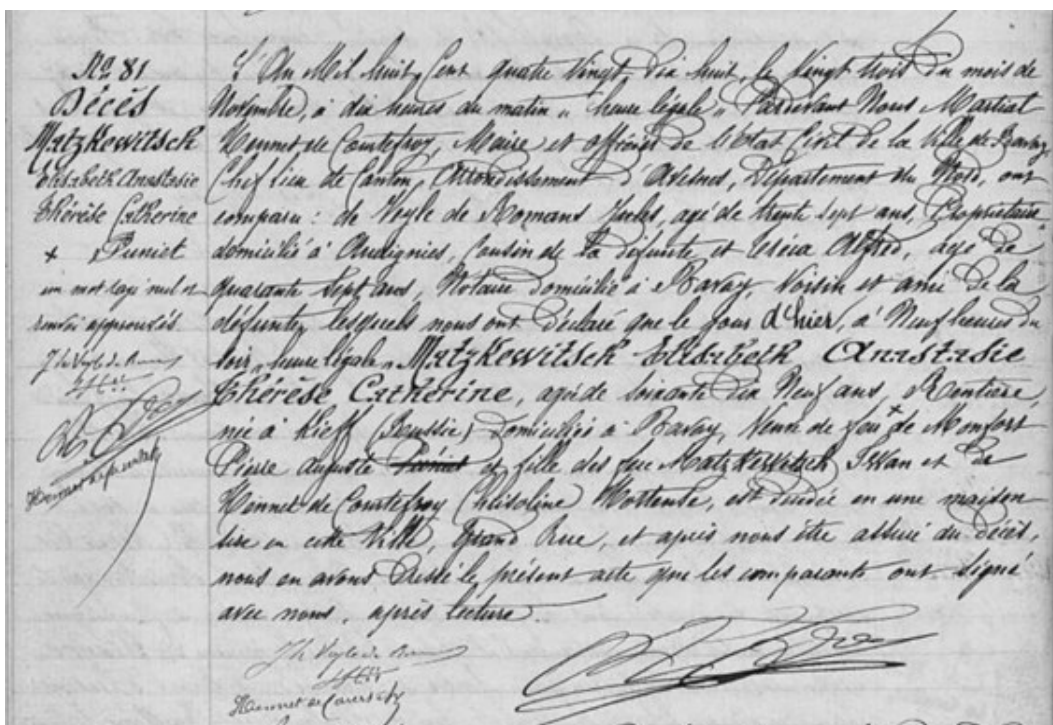 No 81
Décès
Matzkewitsch
Elisabeth Anastasie
Thérèse Catherine
+ Puniet
un mot rayé nul et
renvoi approuvés.
L'An Mil huit Cent quatre Vingt, dix huit, le Vingt trois du mois de
Novembre, à dix heures du matin „ heure légale „ Pardevant Nous, Martial
Hennet de Courtefroy, Maire et officier de l'Etat Civil de la Ville de Bavay,
Chef lieu de Canton, Arrondissement d'Avesnes, Département du Nord, ont
comparu : de Vogle de Romans Jules, agé de trente sept ans, Propriétaire
domicilié à Audignies, Cousin de la défunte, et Alfred, agé de
quarante sept ans, Notaire domicilié à Bavay, Voisin et ami de la
défunte, lesquels nous ont déclaré que le jour d'hier, à Neuf heures du
soir „ heure légale „ Matzkewitsch Elisabeth Anastasie
Thérèse Catherine, agée de soixante dix Neuf ans, Rentière,
née à Kieff (Russie) domiciliée à Bavay, Veuve de feu + de Monfort
Pierre Auguste et fille des feu Matzkewitsch Iwan et de
Hennet de Courtefroy Hortense, est décédée en une maison
sise en cette Ville, Grand Rue, et après nous être assuré du décès,
nous en avons dressé le présent acte que les comparants ont signé
avec nous, après lecture.